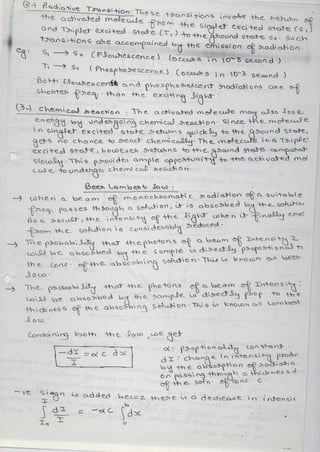 (2-) Radiative Transition: These transitions involve the return of
the activated molecule from the singlet excited state (S₁)
and Triplet excited state (T₁) to the ground state S₀. Such
transitions are accompanied by the emission of radiation.
eg: S₁ → S₀ (Flourescence) (occurs in 10⁻⁸ second).
T₁ → S₀ (Phosphorescence) (occurs in 10⁻³ second)
Both flourescence and phosphorescent radiations are of
shorter freq. than the exciting light
(3-) Chemical reaction: The activated molecule may also lose
energy by undergoing chemical reaction. Since the molecule
in singlet excited state returns quickly to the ground state,
gets no chance to react chemically. The molecule in a Triplet
excited state, however returns to the ground state comparat
slowly. This provides ample opportunity to the activated mol
cule to undergo chemical reaction.
Beer Lambert's law:
→ when a beam of monochromatic radiation of a suitable
freq. passes through a solution, it is absorbed by the solution
As a result, the intensity of the light when it finally eme
from the solution is considerably reduced.
→ The probability that the photons of a beam of Intensity I
will be absorbed by the sample is directly proportional to
the conc. of the absorbing solution. This is known as beer
law.
→ The probability that the photons of a beam of Intensity
will be absorbed by the sample is directly prop to the
thickness of the absorbing solution. This is known as Lambert
law.
Combining both the law, we get
-dI/I = α c dx
α: proportionality constant.
dI: change in intensity produ
by the absorption of radiatio
on passing through a thickness d
of the soln. of conc c
-ve sign is added becoz there is a decrease in intensit
∫_{I₀}^{I} dI/I = -αC ∫_{0}^{b} dx